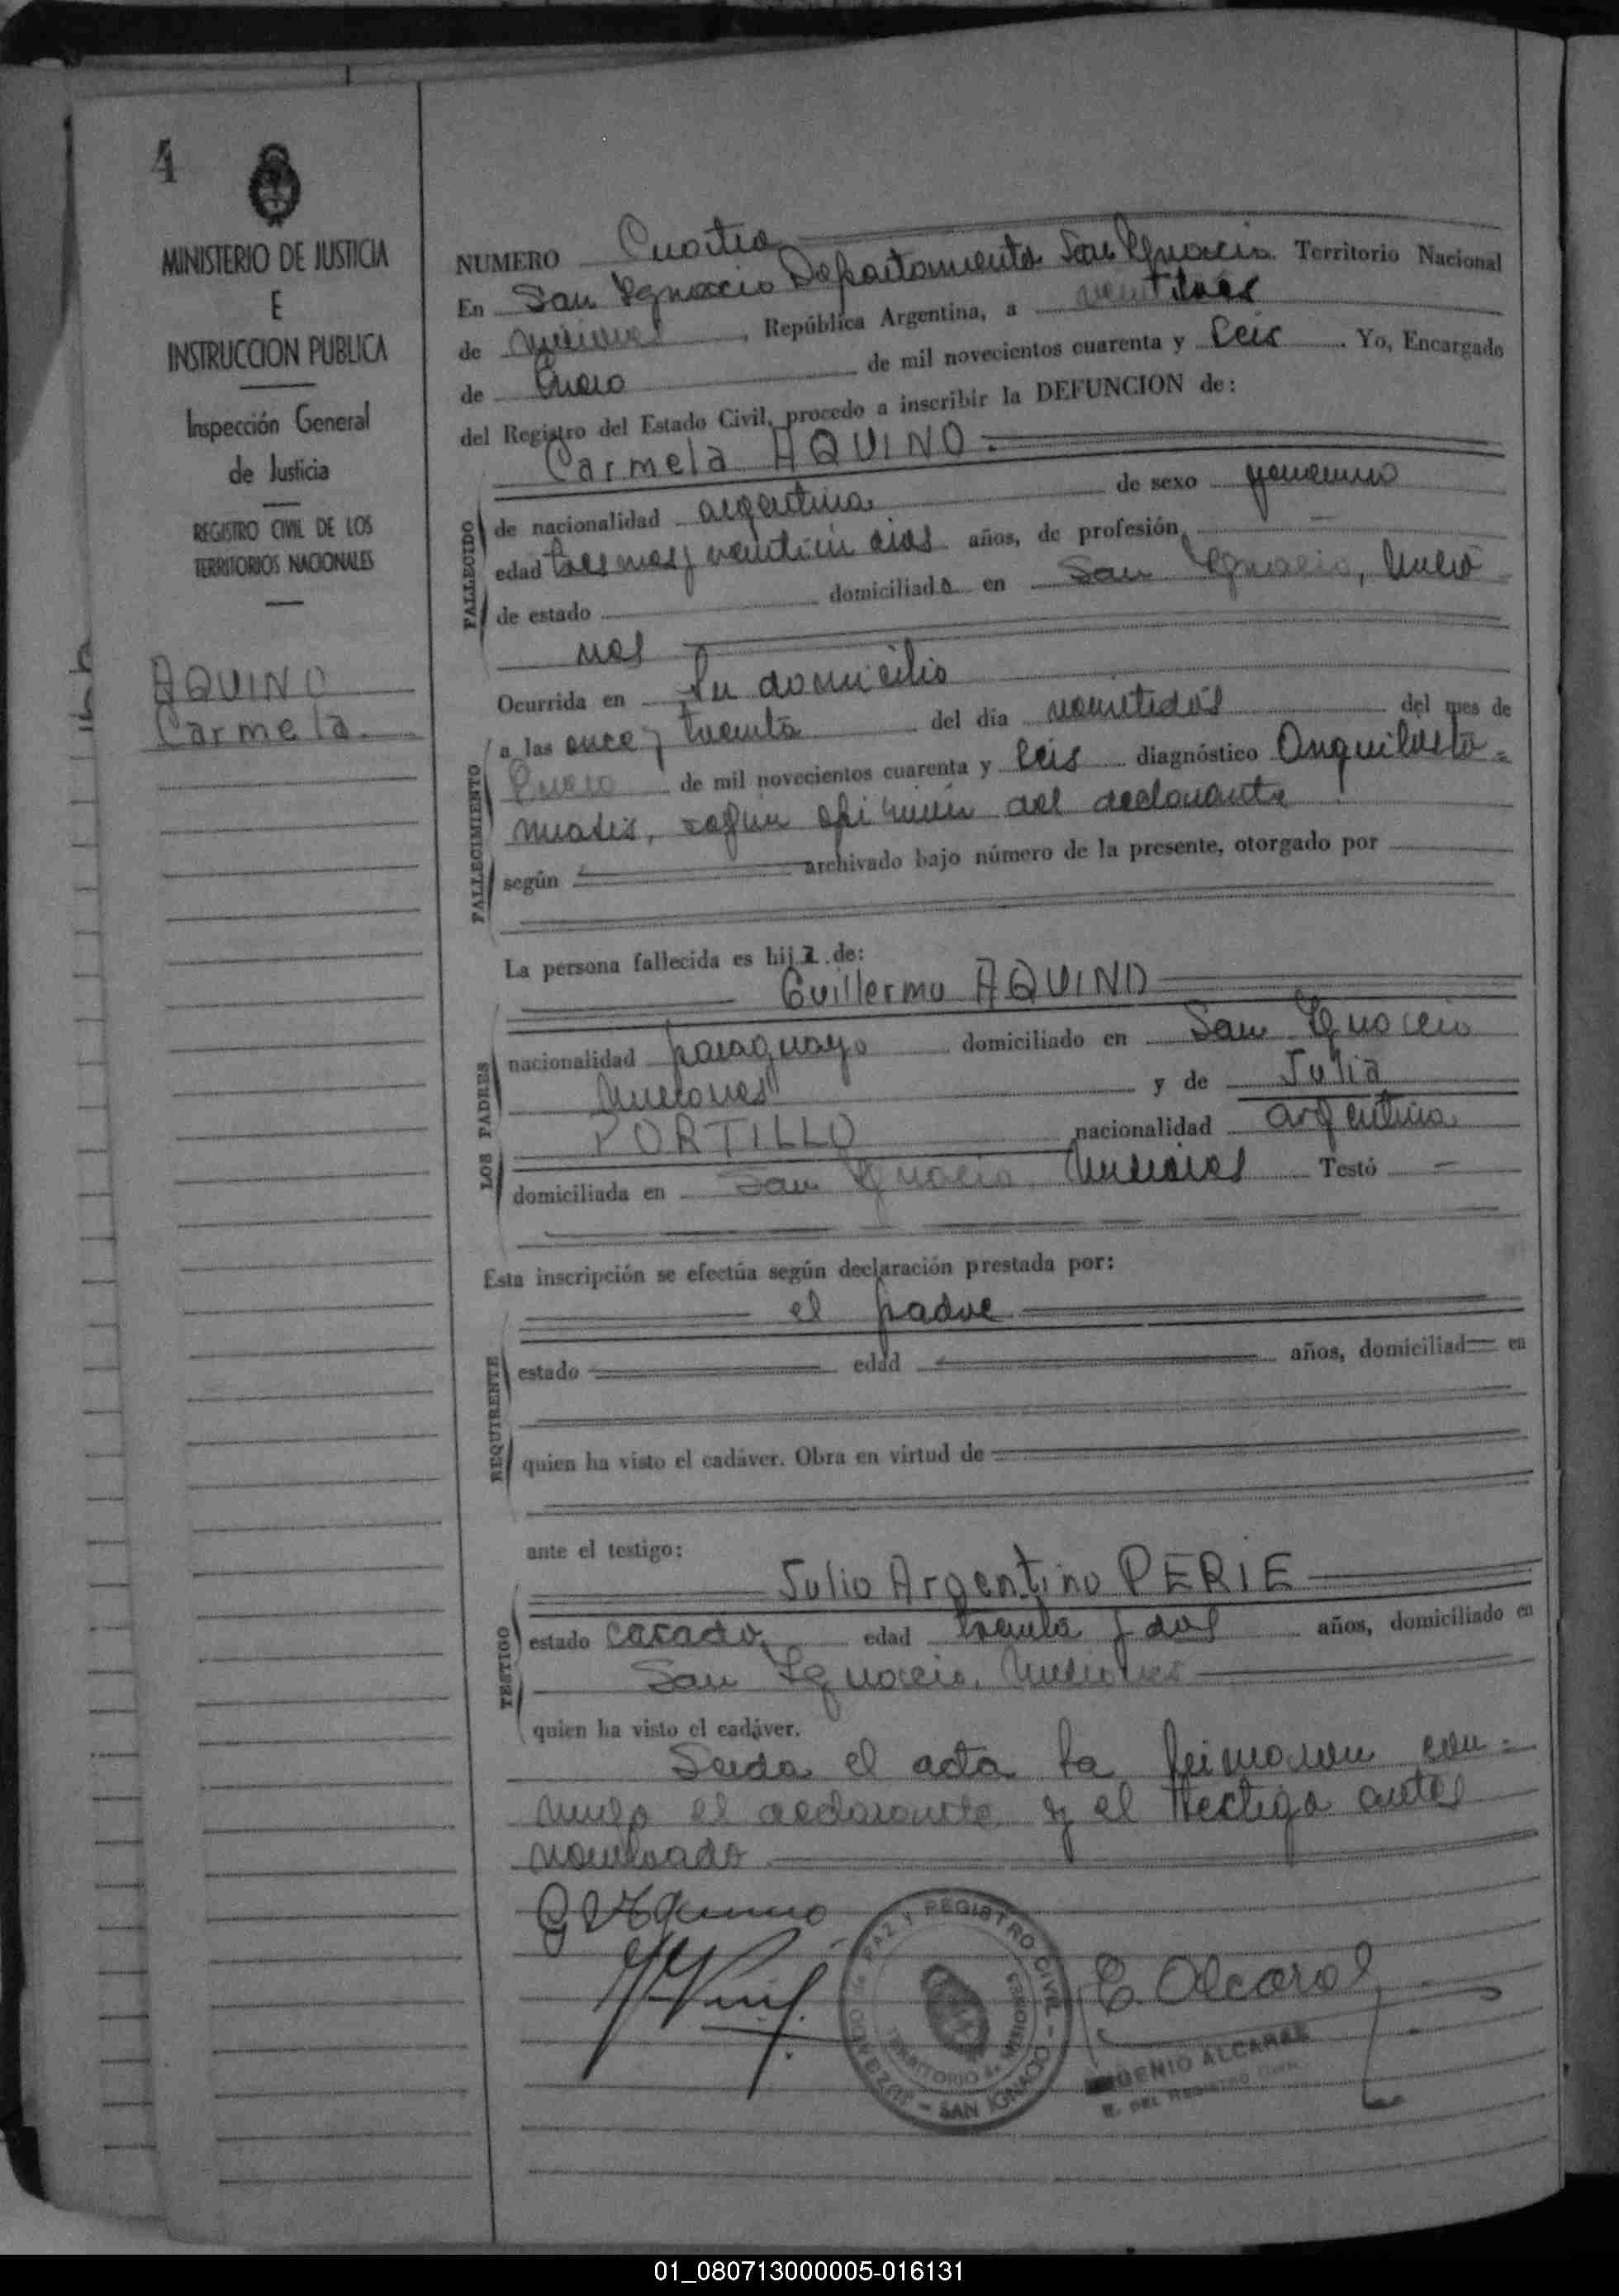 4
MINISTERIO DE JUSTICIA
E
INSTRUCCION PUBLICA
Inspección General
de Justicia
REGISTRO CIVIL DE LOS
TERRITORIOS NACIONALES
AQUINO
Carmela.
NUMERO Cuatro
En San Ignacio Departamento San Ignacio. Territorio Nacional
de Misiones, República Argentina, a veintitrés
de Enero de mil novecientos cuarenta y Seis. Yo, Encargado
del Registro del Estado Civil, procedo a inscribir la DEFUNCION de:
Carmela AQUINO.
FALLECIDO
de nacionalidad argentina de sexo femenino
edad tres mes y veintiun dias años, de profesión, -
de estado domiciliada en San Ignacio, Misio-
nes
FALLECIMIENTO
Ocurrida en Su domicilio
a las once y treinta del día veintidós del mes de
Enero de mil novecientos cuarenta y Seis diagnóstico Anquilosto-
miasis, según opinión del declarante
según archivado bajo número de la presente, otorgado por
La persona fallecida es hija de:
LOS PADRES
Guillermo AQUINO
nacionalidad paraguayo domiciliado en San Ignacio
Misiones y de Julia
PORTILLO nacionalidad argentina
domiciliada en San Ignacio Misiones Testó -
Esta inscripción se efectúa según declaración prestada por:
REQUIRENTE
el padre
estado edad años, domiciliad en
quien ha visto el cadáver. Obra en virtud de
ante el testigo:
TESTIGO
Julio Argentino PERIE
estado casado, edad treinta y dos años, domiciliado en
San Ignacio, Misiones
quien ha visto el cadáver.
Leida el acta la firmaron con-
migo el declarante y el testigo antes
nombrado
JUZGADO de PAZ Y REGISTRO CIVIL - SAN IGNACIO -
TERRITORIO de MISIONES
E. Alcaraz
EUGENIO ALCARAZ
E. DEL REGISTRO CIVIL
01_080713000005-016131